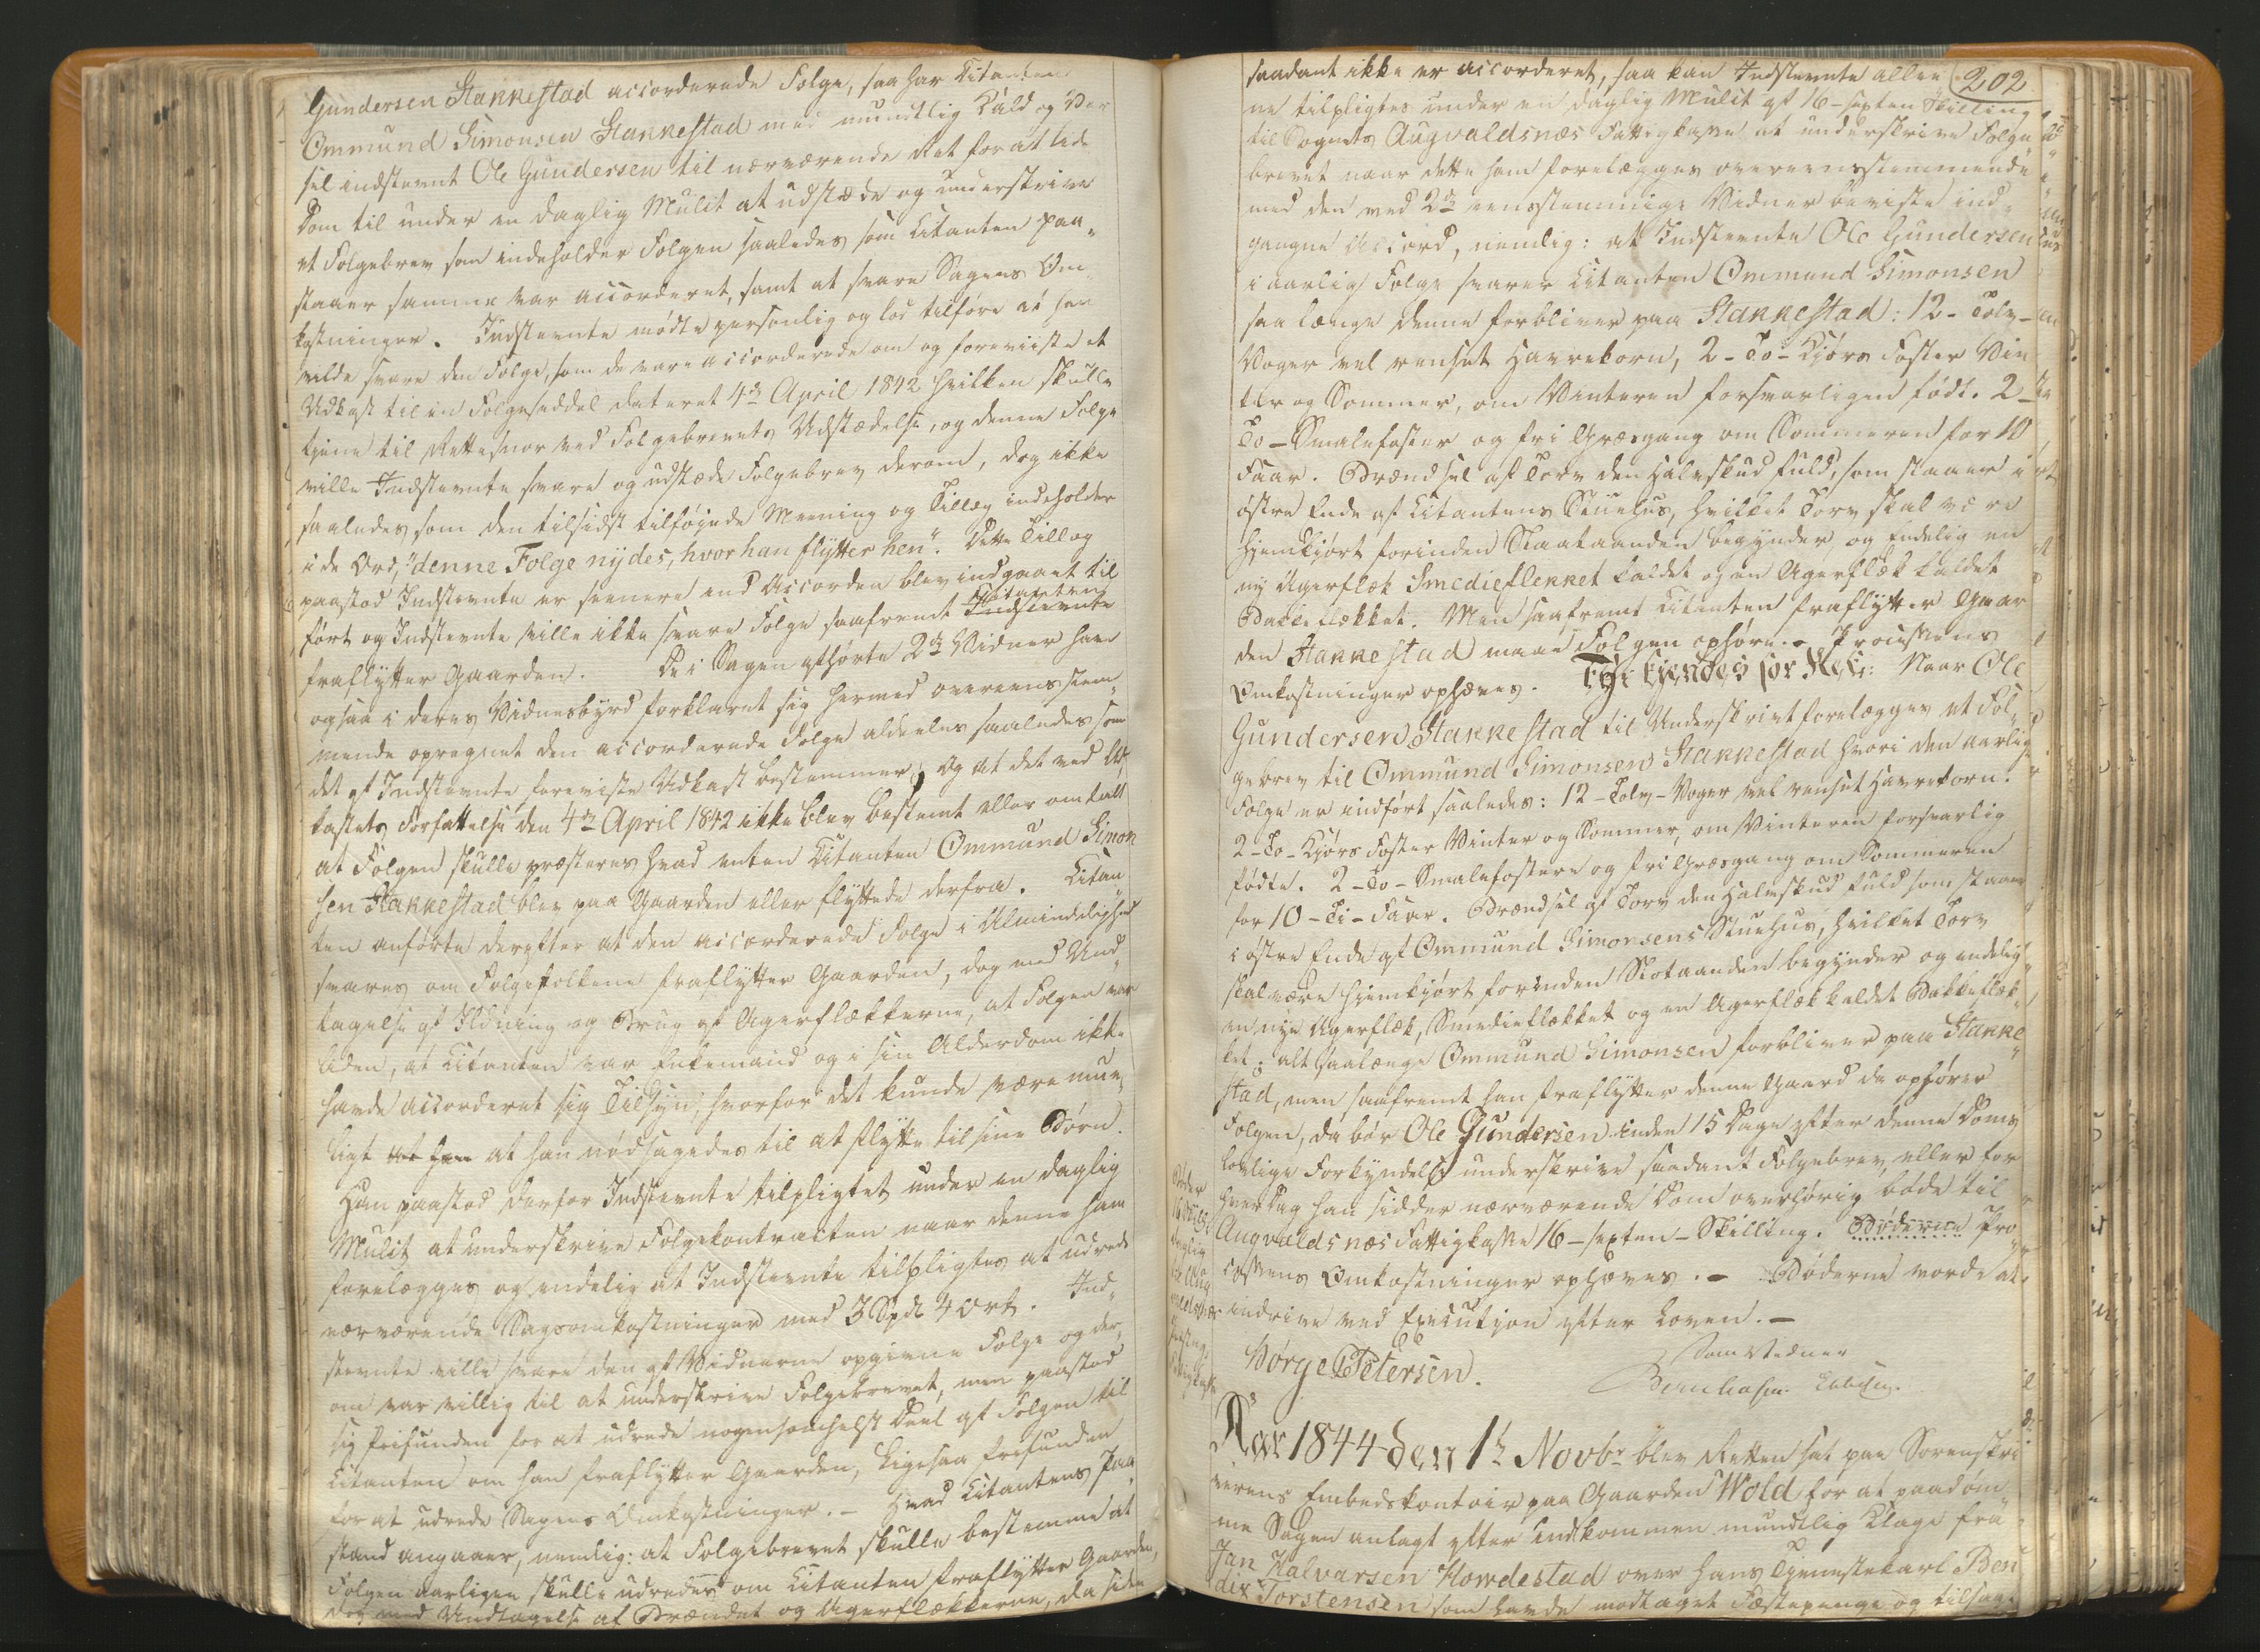 Gundersen Stakkestad accorderede Folge, saa har Citanten
Ommund Simonsen Stakkestad med mundtlig Kald og Var
sel indstevnt Ole Gundersen til nærværende Ret for at lide
Dom til under en daglig Mulct at udstæde og underskrive
et Folgebrev som indeholder Folgen saaledes som Citanten paa„
staaer samme var accorderet, samt at svare Sagens Om„
kostninger. Indstevnte mødte personlig og lod tilføre at han
vilde svare den Folge, som de vare accorderede om og foreviiste et
Udkast til en Folgeseddel dateret 4de April 1842 hvilken skulle
tjene til Rettesnor ved Folgebrevets Udstædelse, og denne Folge
ville Indstevnte svare og udstæde Folgebrev derom, dog ikke
saaledes som den tilsidst tilføjede Meening og Tillæg indeholder
i de Ord, "denne Folge nydes, hvor han flytter hen". Dette Tillæg
paastod Indstevnte er seenere end Accorden blev indgaaet til
ført og Indstevnte ville ikke svare Folge saafremt Indstevnte Citanten
fraflytter Gaarden. De i Sagen afhørte 2de Vidner have
ogsaa i deres Vidnesbyrd forklaret sig hermed overeensstem„
mende opregnet den accorderede Folge aldeeles saaledes som
det af Indstevnte foreviste Udkast bestemmer, og at det ved Ud„
kastets Forfattelse den 4de April 1842 ikke blev bestemt eller omtalt
at Folgen skulle præsteres hvad enten Citanten Ommund Simon
sen Stakkestad blev paa Gaarden eller flyttede derfra. Citan„
ten anførte derefter at den accorderede Folge i Almindelighed
svares om Folgefolkene fraflytter Gaarden, dog med Und„
tagelse af Ildning og Brug af Agerflækkerne, at Folgen var
liden, at Citanten var Enkemand og i sin Alderdom ikke
havde accorderet sig Tilsyn, hvorfor det kunde være mue„
ligt at han at han nødsagedes til at flytte til sine Børn.
Han paastod derfor Indstevnte tilpligtet under en daglig
Mulct at underskrive Folgekontracten naar denne ham
forelægges og endelig at Indstevnte tilpligtes at udrede
nærværende Sagsomkostninger med 3 Spd 4 Ort. Ind„
stevnte ville svare den af Vidnerne opgivne Folge og der„
om var villig til at underskrive Folgebrevet, men paastod
sig frifunden for at udrede nogensomhelst Deel af Folgen til
Citanten om han fraflytter Gaarden, ligesaa frifunden
for at udrede Sagens Omkostninger. – Hvad Citantens Paa„
stand angaaer, nemlig: at Folgebrevet skulle bestemme at
Folgen aarligen skulle udredes om Citanten fraflytter Gaarden,
dog med Undtagelse af Brændet og Agerflækkerne, da siden
202
saadant ikke er accorderet, saa kan Indstevnte allee
ne tilpligtes under en daglig Mulct af 16 – sexten Skilling
til Sognets Augvaldsnæs Fattigkasse at underskrive Folge„
brevet naar dette ham forelægges overeensstemmende
med den ved 2de eensstemmige Vidner beviste ind„
gangne Accord, nemlig: at Indstevnte Ole Gundersen
i aarlig Folge svarer Citanten Ommund Simonsen
saa længe denne forbliver paa Stakkestad: 12 – Tolv –
Voger vel renset Havrekorn, 2 – To – Kjørs Foster Vin
ter og Sommer, om Vinteren forsvarligen født. 2
To – Smalefoster og fri Græsgang om Sommeren for 10
Faar. Brændsel af Torv den Halvskud fuld, som staaer i
østre Ende af Citantens Stuehus, hvilket Torv skal være
hjemkjørt forinden Slaataanden begynder og endelig en
ny Agerflæk Smedieflekket kaldet og en Agerflæk kaldet
Bakkeflækket. Men saafremt Citanten fraflytter Gaar
den Stakkestad maae Folgen ophøre. – Processens
Omkostninger ophæves. Thi kjendes for Ret: Naar Ole
Gundersen Stakkestad til Underskrivt forelægges et Fol„
gebrev til Ommund Simonsen Stakkestad hvori den aarlig
Folge er indført saaledes: 12 – Tolv – Voger vel renset Havrekorn.
2 – To – Kjørs Foster Vinter og Sommer, om Vinteren forsvarlig
fødte. 2 – To – Smalefostere og fri Græsgang om Sommeren
for 10 – Ti – Faar. Brændsel af Torv den Halvskud fuld som staaer
i østre Ende af Ommund Simonsens Stuehus, hvilket Torv
skal være hjemkjørt forinden Slotaanden begynder og endelig
en nye Agerflæk, Smedieflækket og en Agerflæk kaldet Bakkeflæk„
ket; alt saalænge Ommund Simonsen forbliver paa Stakke„
stad, men saafremt han fraflytter denne Gaard da ophører
Folgen, da bør Ole Gundersen inden 15 Dage efter denne Doms
lovlige Forkyndelse underskrive saadant Folgebrev, eller for
hver Dag han sidder nærværende Dom overhørig bøde til
Augvaldsnæs Fattigkasse 16 – sexten – Skilling. Bøderne Pro„
cessens Omkostninger ophæves. – Bøderne vorde at
inddrive ved Execution efter Loven. –
Børge Petersen.
Som Vidner
Aar 1844 den 1te Novbr blev Retten sat paa Sorenskri
verens Embedskontoir paa Gaarden Wold for at paadøm„
me Sagen anlagt efter indkommen mundtlig Klage fra
Jan Halvarsen Howdestad over hans Tjenestekarl Ben
dix Torstensen som havde modtaget Fæstepenge og tilsagt